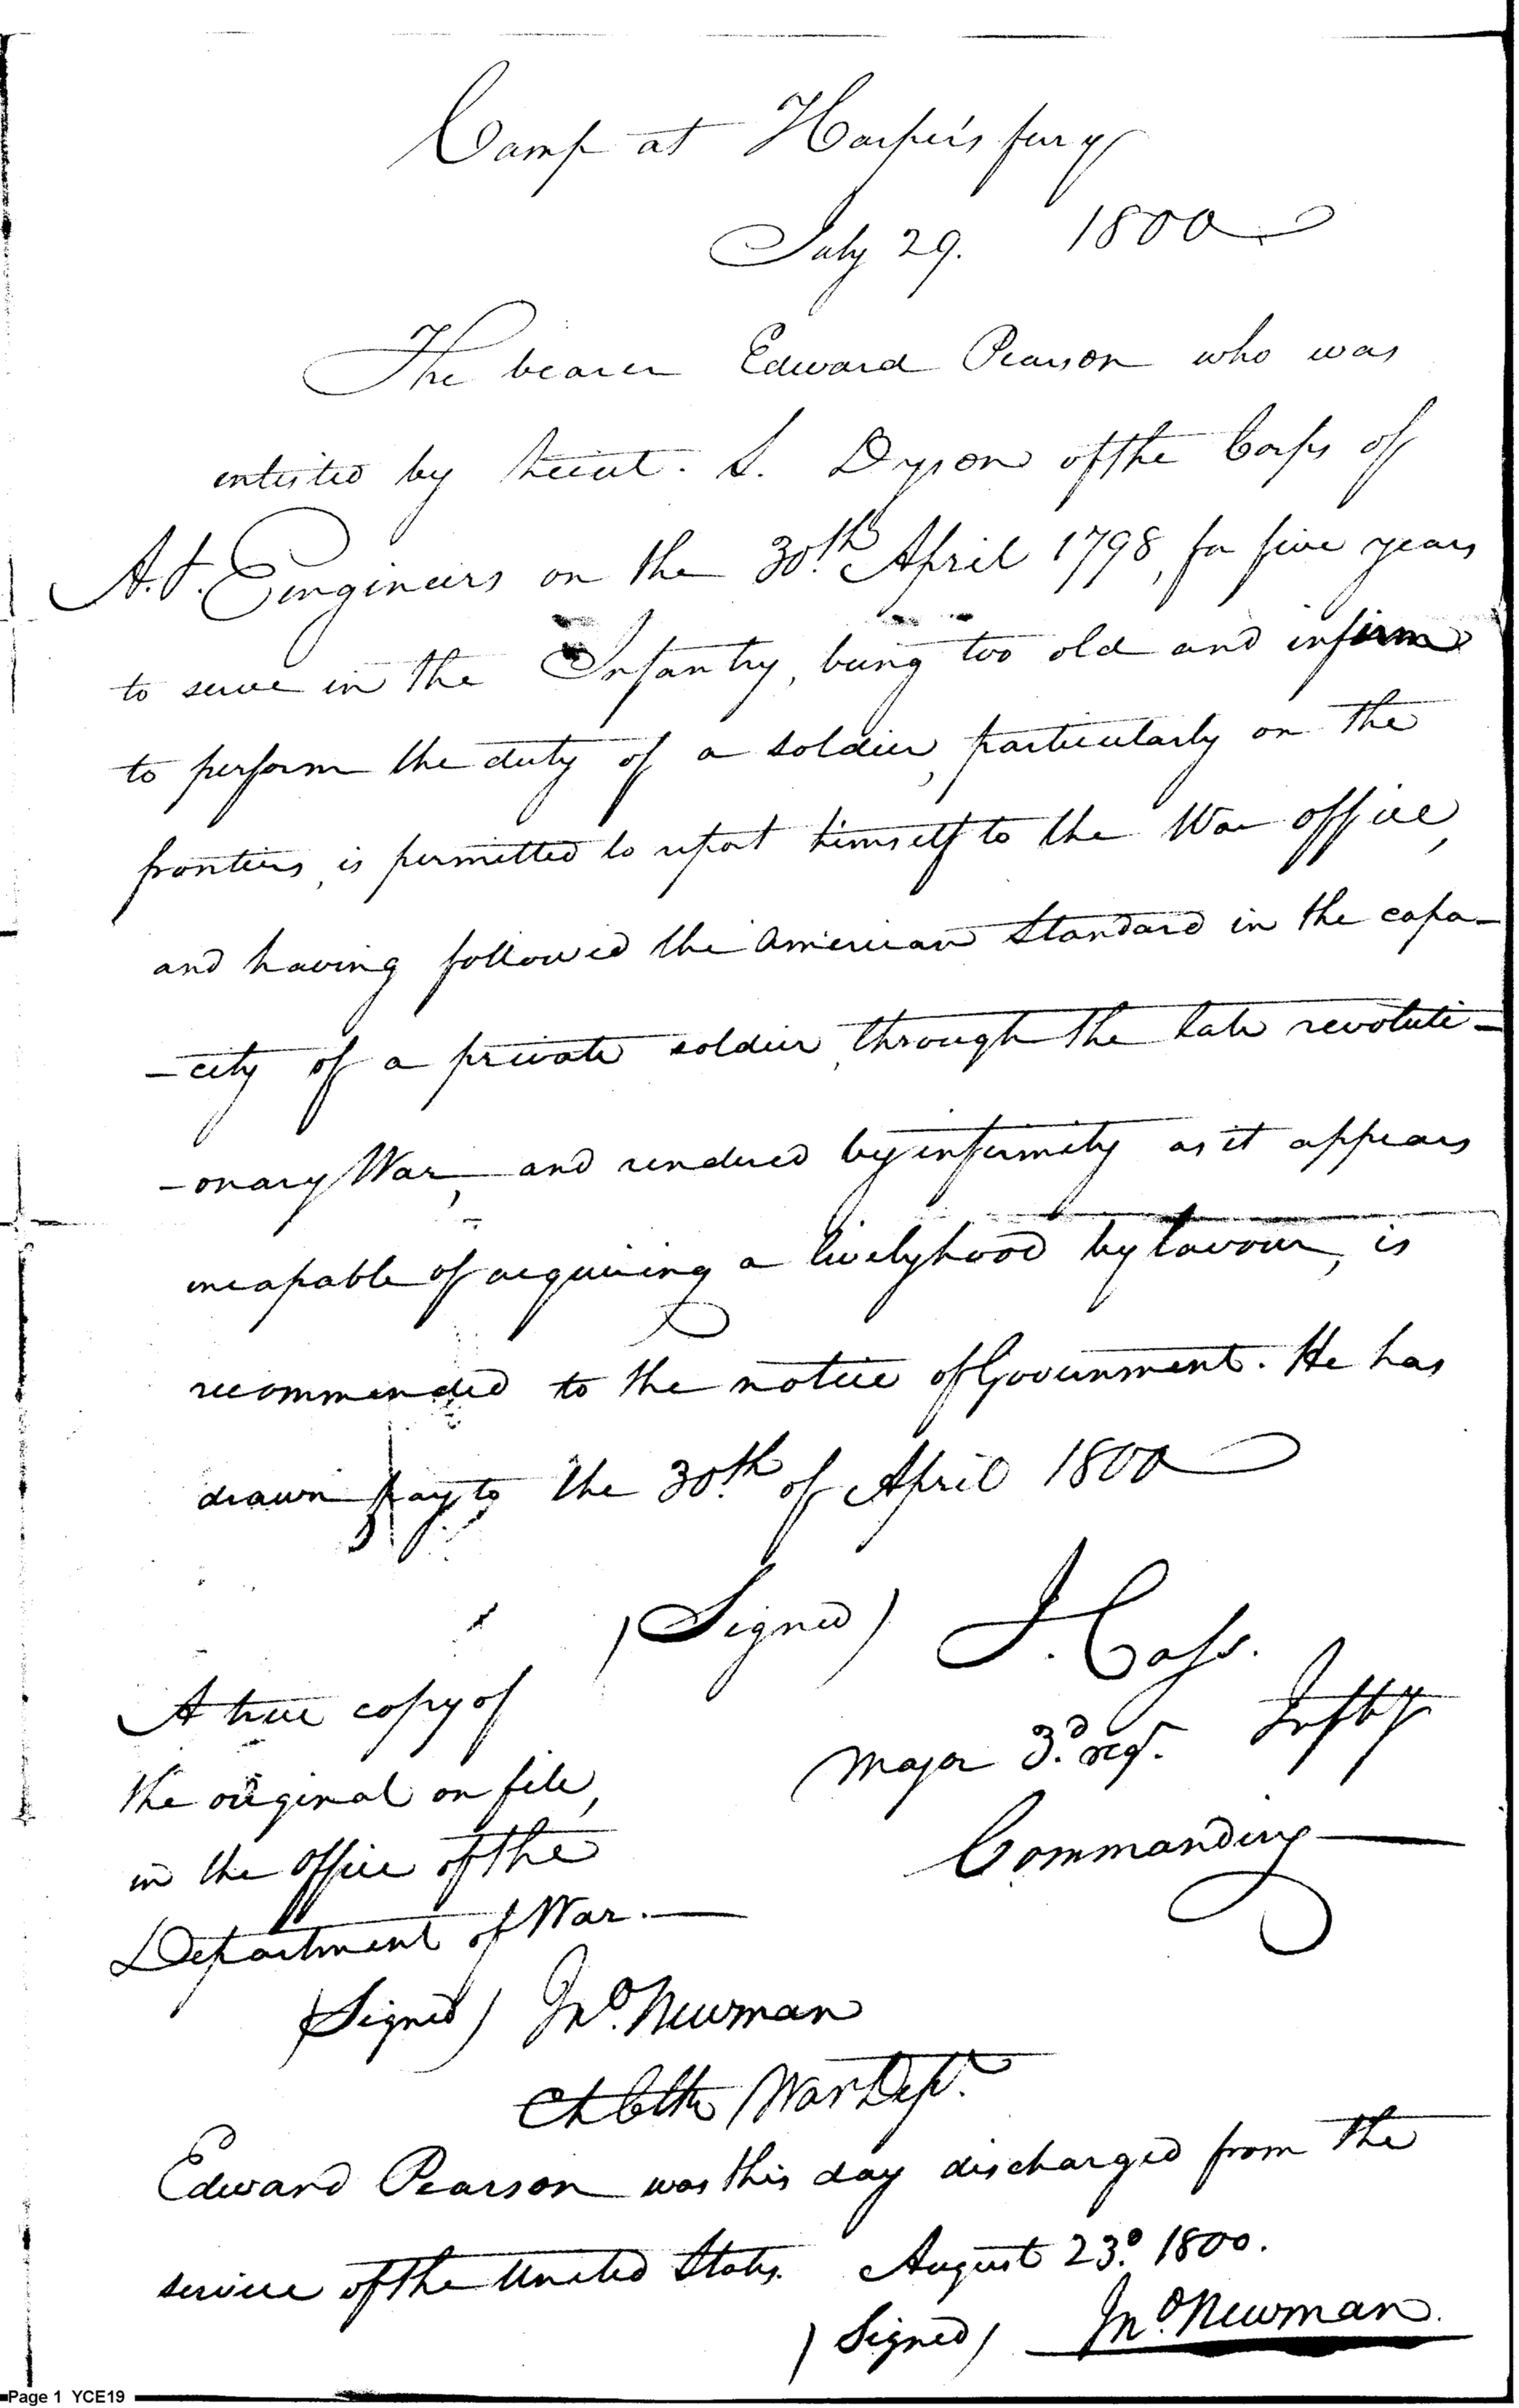 Camp at Harper's ferry
July 29. 1800
The bearer Edward Pearson who was
enlisted by Lieut. S. Dyson of the Corps of
A. & Engineers on the 30th April 1798, for five years
to serve in the Infantry, being too old and infirm
to perform the duty of a soldier, particularly on the
frontiers, is permitted to report himself to the War office,
and having followed the American Standard in the capa-
-city of a private soldier, through the late revoluti-
-onary War, and rendered by infirmity as it appears
incapable of acquiring a livelyhood by labour, is
recommended to the notice of Government. He has
drawn pay to the 30th of April 1800
(Signed) J. Cass.
Major 3d. regt. Infty
Commanding
A true copy of
the original on file,
in the office of the
Department of War.
(Signed) Jno. Newman
Ch Clk War Dept.
Edward Pearson was this day discharged from the
service of the United States. August 23d. 1800.
(Signed) Jno. Newman.
Page 1 YCE19